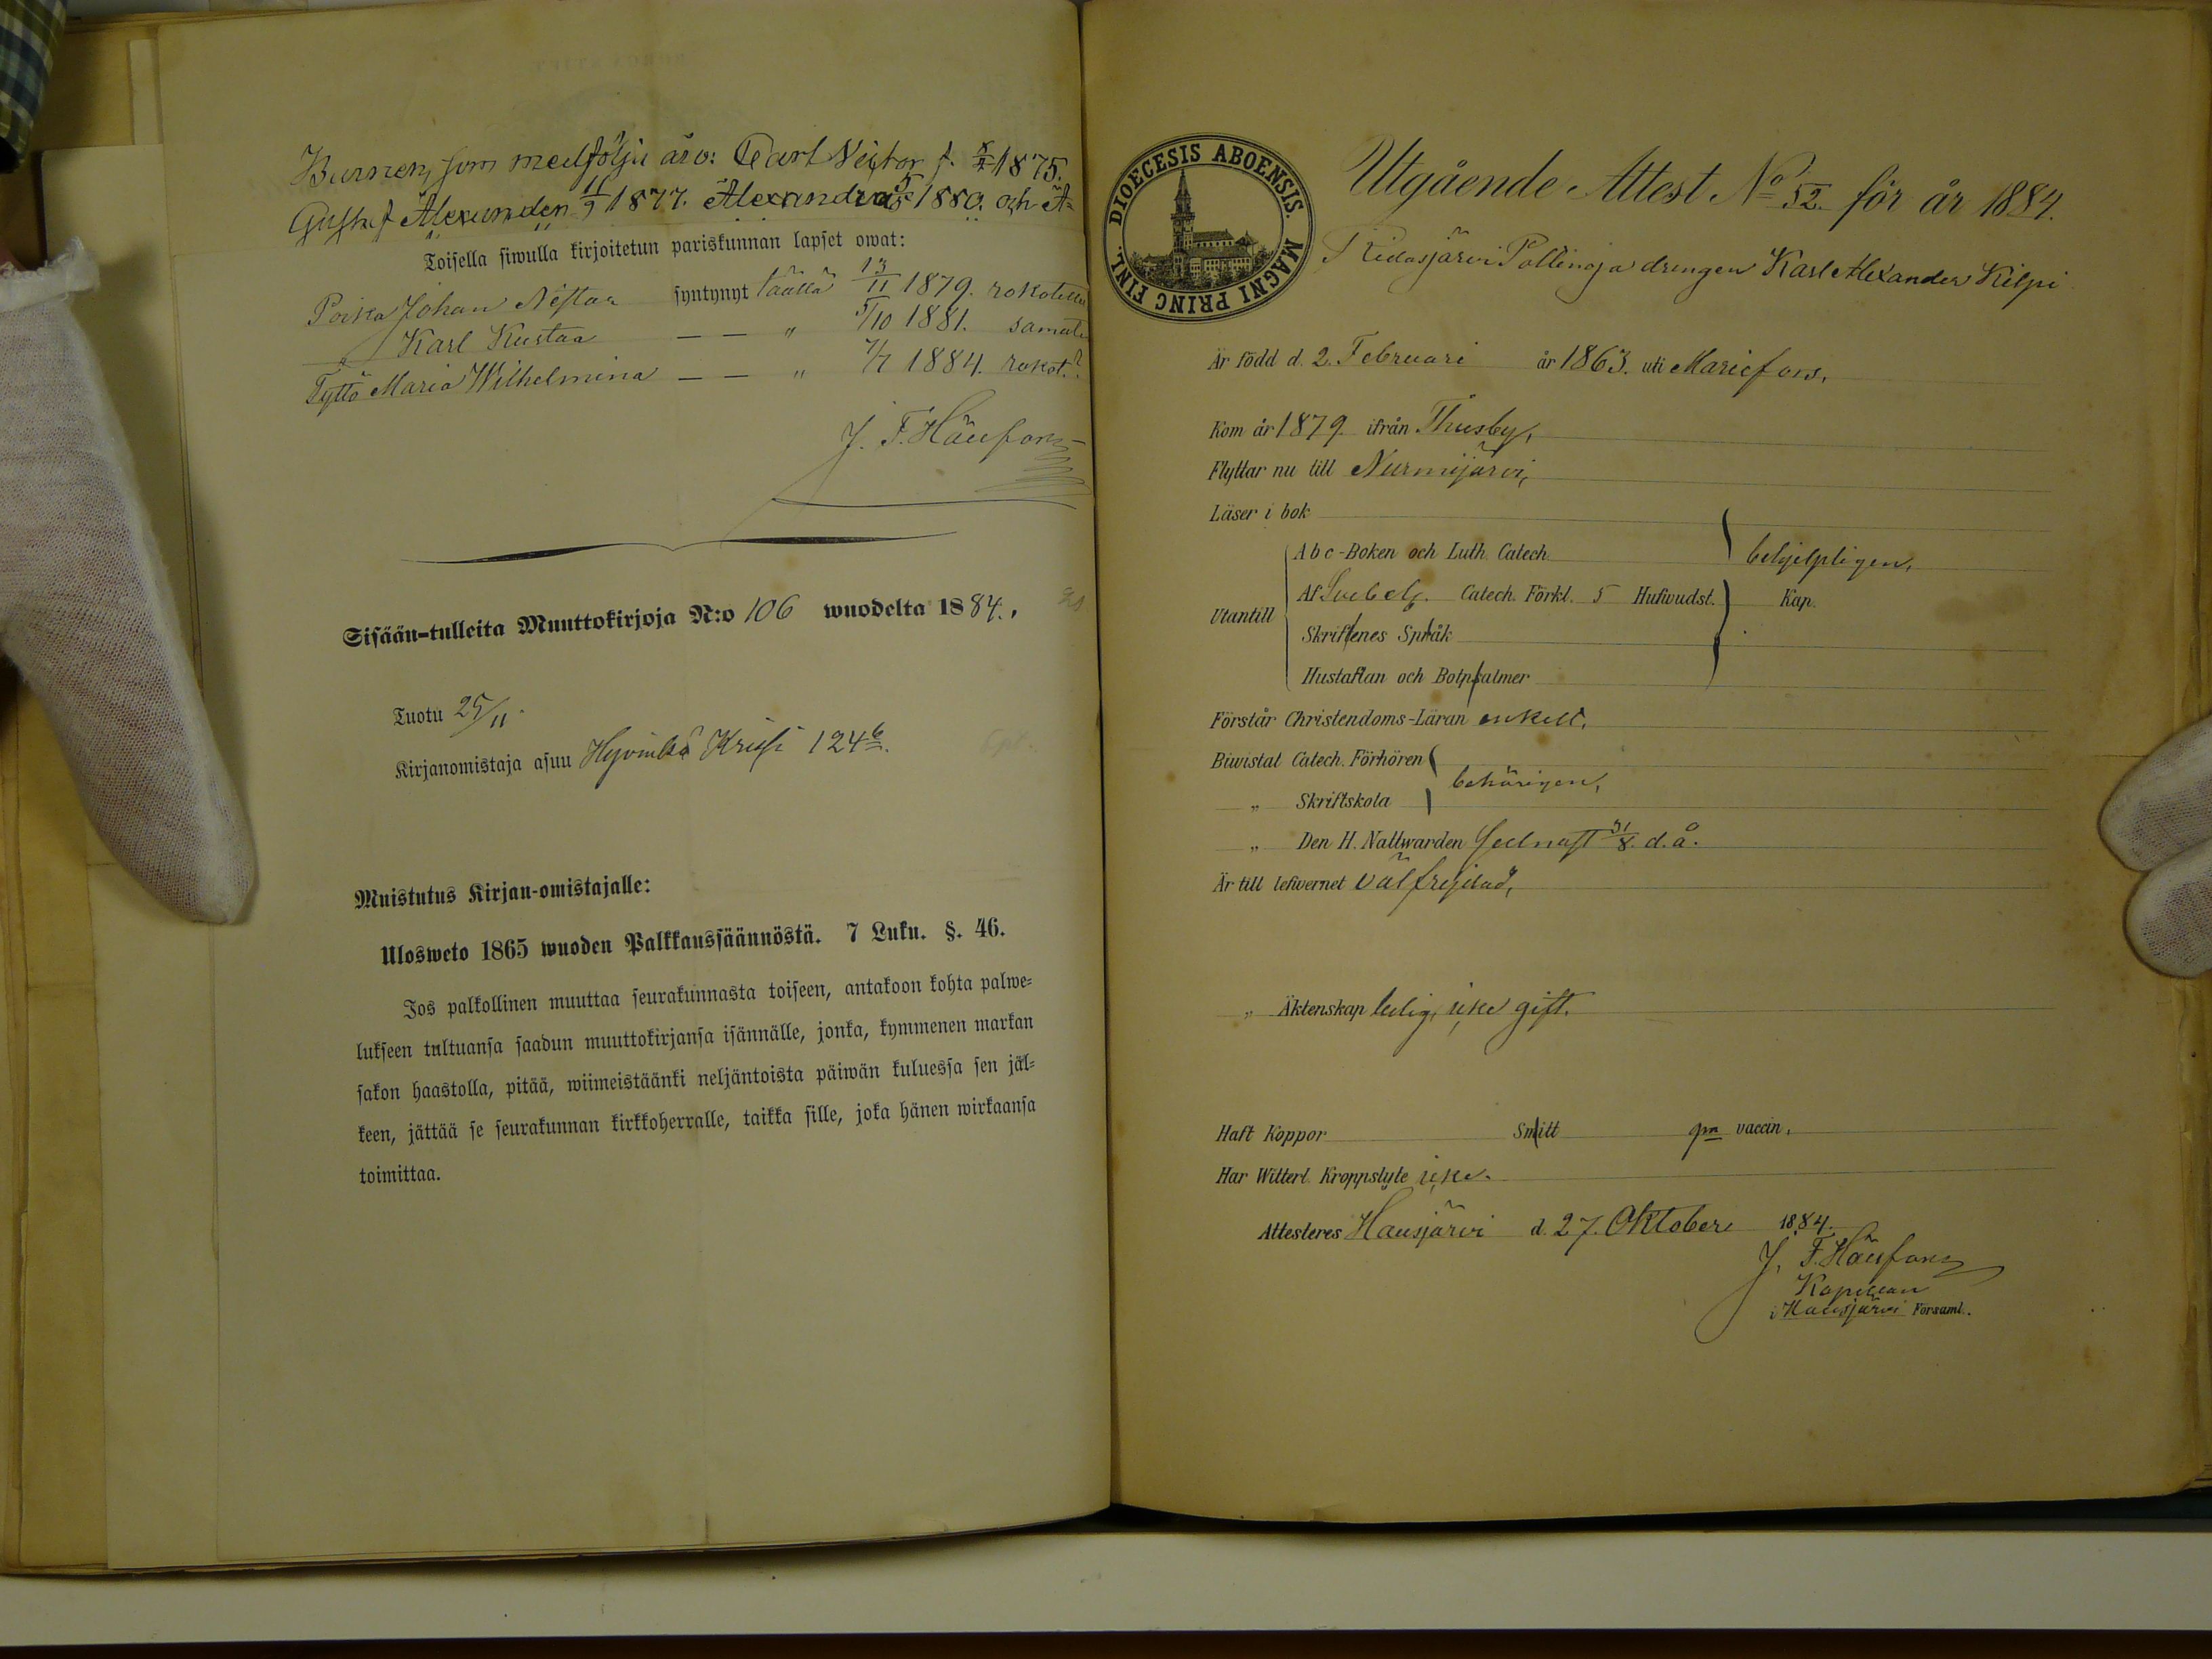 Barnen, som medfölja äro: Carl Victor f. 1875.
Gustaf Alexander 11/9 1877. Alexandra 5/5 1880. och A-
Toisella siwulla kirjoitetun pariskunnan lapset owat:
Poika Johan Nestor syntynyt täällä 13/11 1879. rokotettu
Karl Kustaa — — „ 5/10 1881. samate
Tyttö Maria Wilhelmina — — „ 7/7 1884. rokot.?
J. F. Häufors
Sisään-tulleita Muuttokirjoja N:o 106 wuodelta 1884.,
Tuotu 25/11.
Kirjanomistaja asuu Hyvinkä Krusi 124
Muistutus Kirjan-omistajalle:
Ulosweto 1865 wuoden Palkkaussäännöstä. 7 Luku. §. 46.
Jos palkollinen muuttaa seurakunnasta toiseen, antakoon kohta palwe-
lukseen tultuansa saadun muuttokirjansa isännälle, jonka, kymmenen markan
sakon haastolla, pitää, wiimeistäänki neljäntoista päiwän kuluessa sen jäl-
keen, jättää se seurakunnan kirkkoherralle, taikka sille, joka hänen wirkaansa
toimittaa.
DIOECESIS ABOENSIS. MAGNI PRINC FINL.
Utgående Attest No 52. för år 1884.
Ridasjärvi Pollinoja drengen Karl Alexander Kilpi
Är född d. 2. Februari år 1863. uti Mariefors,
Kom år 1879 ifrån Thusby,
Flyttar nu till Nurmijärvi,
Läser i bok
Utantill
Abc-Boken och Luth. Catech. behjelpligen,
Af Svebel. Catech. Förkl. 5 Hufwudst. Kap.
Skriftenes Språk
Hustaflan och Botpsalmer
Förstår Christendoms-Läran enkelt.
Biwistat Catech. Förhören
behörigen,
„ Skriftskola
„ Den H. Nattwarden sednast 31/8. d. å.
Är till lefwernet välfrejdad,
„ Äktenskap ledig, icke gift.
Haft Koppor Smitt gm vaccin,
Har Witterl. Kroppslyte icke.
Attesteres Hausjärvi d. 27. Oktober 1884.
J. F. Häufors
Kapellan
i Hausjärvi Församl.